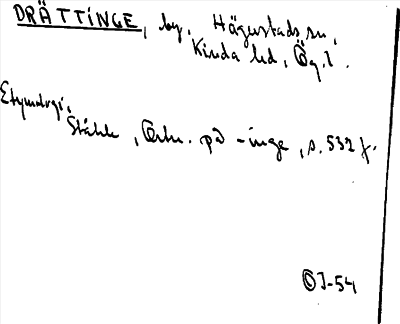 DRÄTTINGE, by, Hägerstads sn,
Kinda hd, Ög. l.
Etymologi,
Ståhle, Ortn. på -inge, s. 532 f.
ÖJ-54